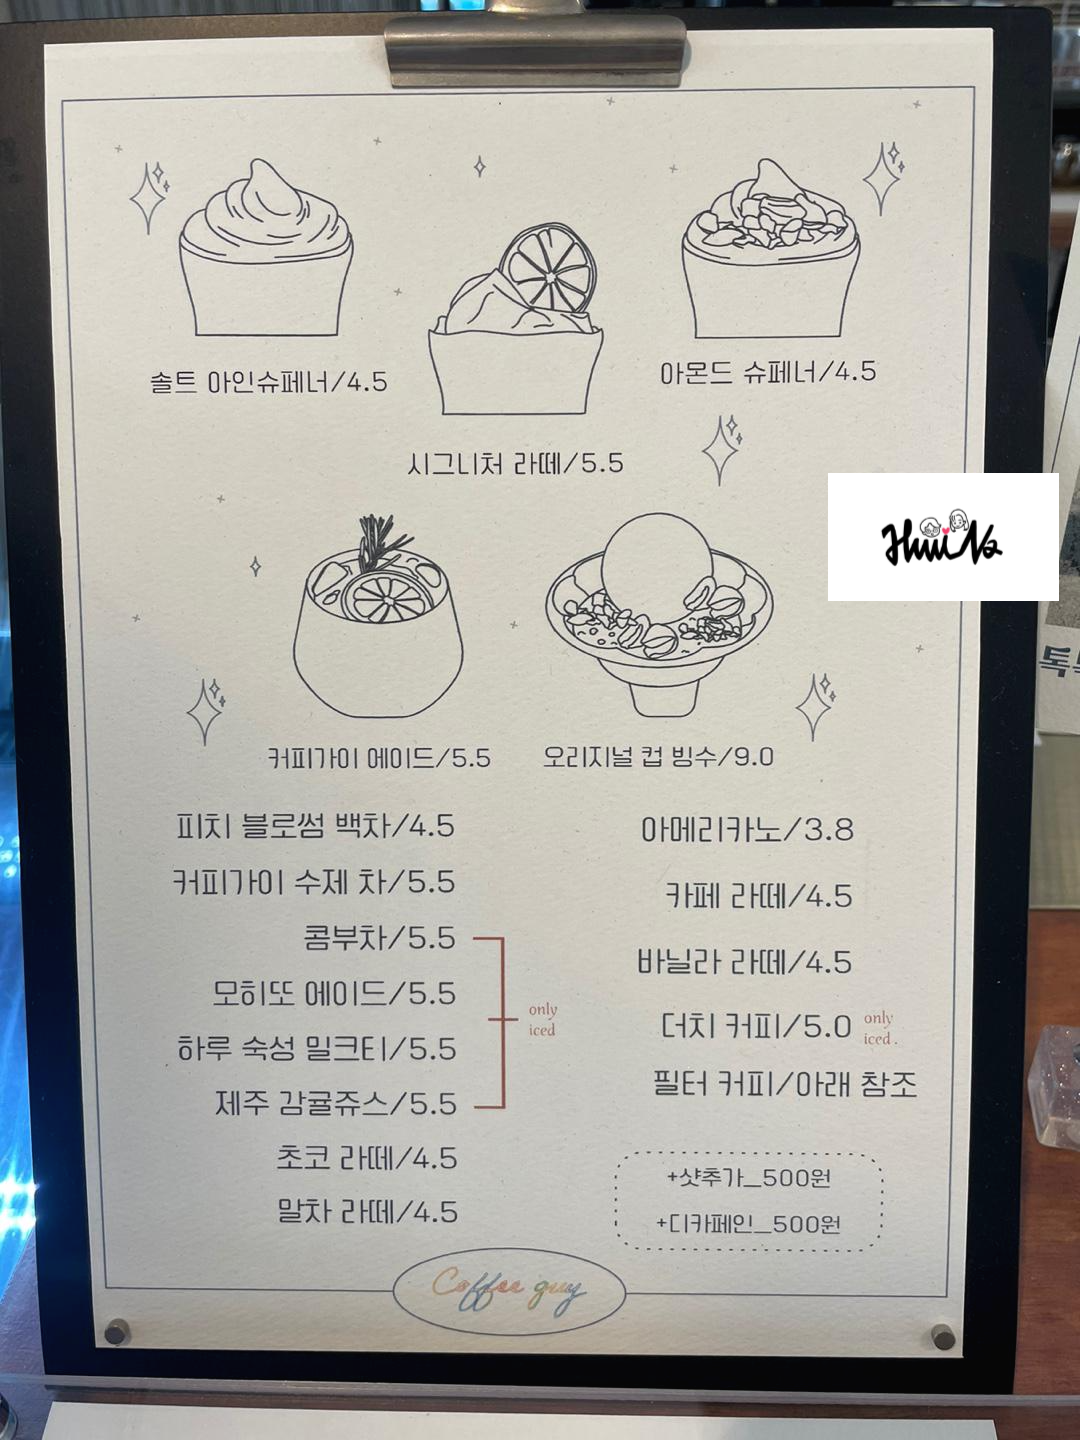 솔트 아인슈페너/4.5
아몬드 슈페너/4.5
시그니처 라떼/5.5
Huui Na
커피가이 에이드/5.5
오리지널 컵 빙수/9.0
피치 블로썸 백차/4.5
커피가이 수제 차/5.5
콤부차/5.5
모히또 에이드/5.5
하루 숙성 밀크티/5.5
제주 감귤쥬스/5.5
only
iced
초코 라떼/4.5
말차 라떼/4.5
아메리카노/3.8
카페 라떼/4.5
바닐라 라떼/4.5
더치 커피/5.0 only
iced.
필터 커피/아래 참조
+샷추가_500원
+디카페인_500원
Coffee guy